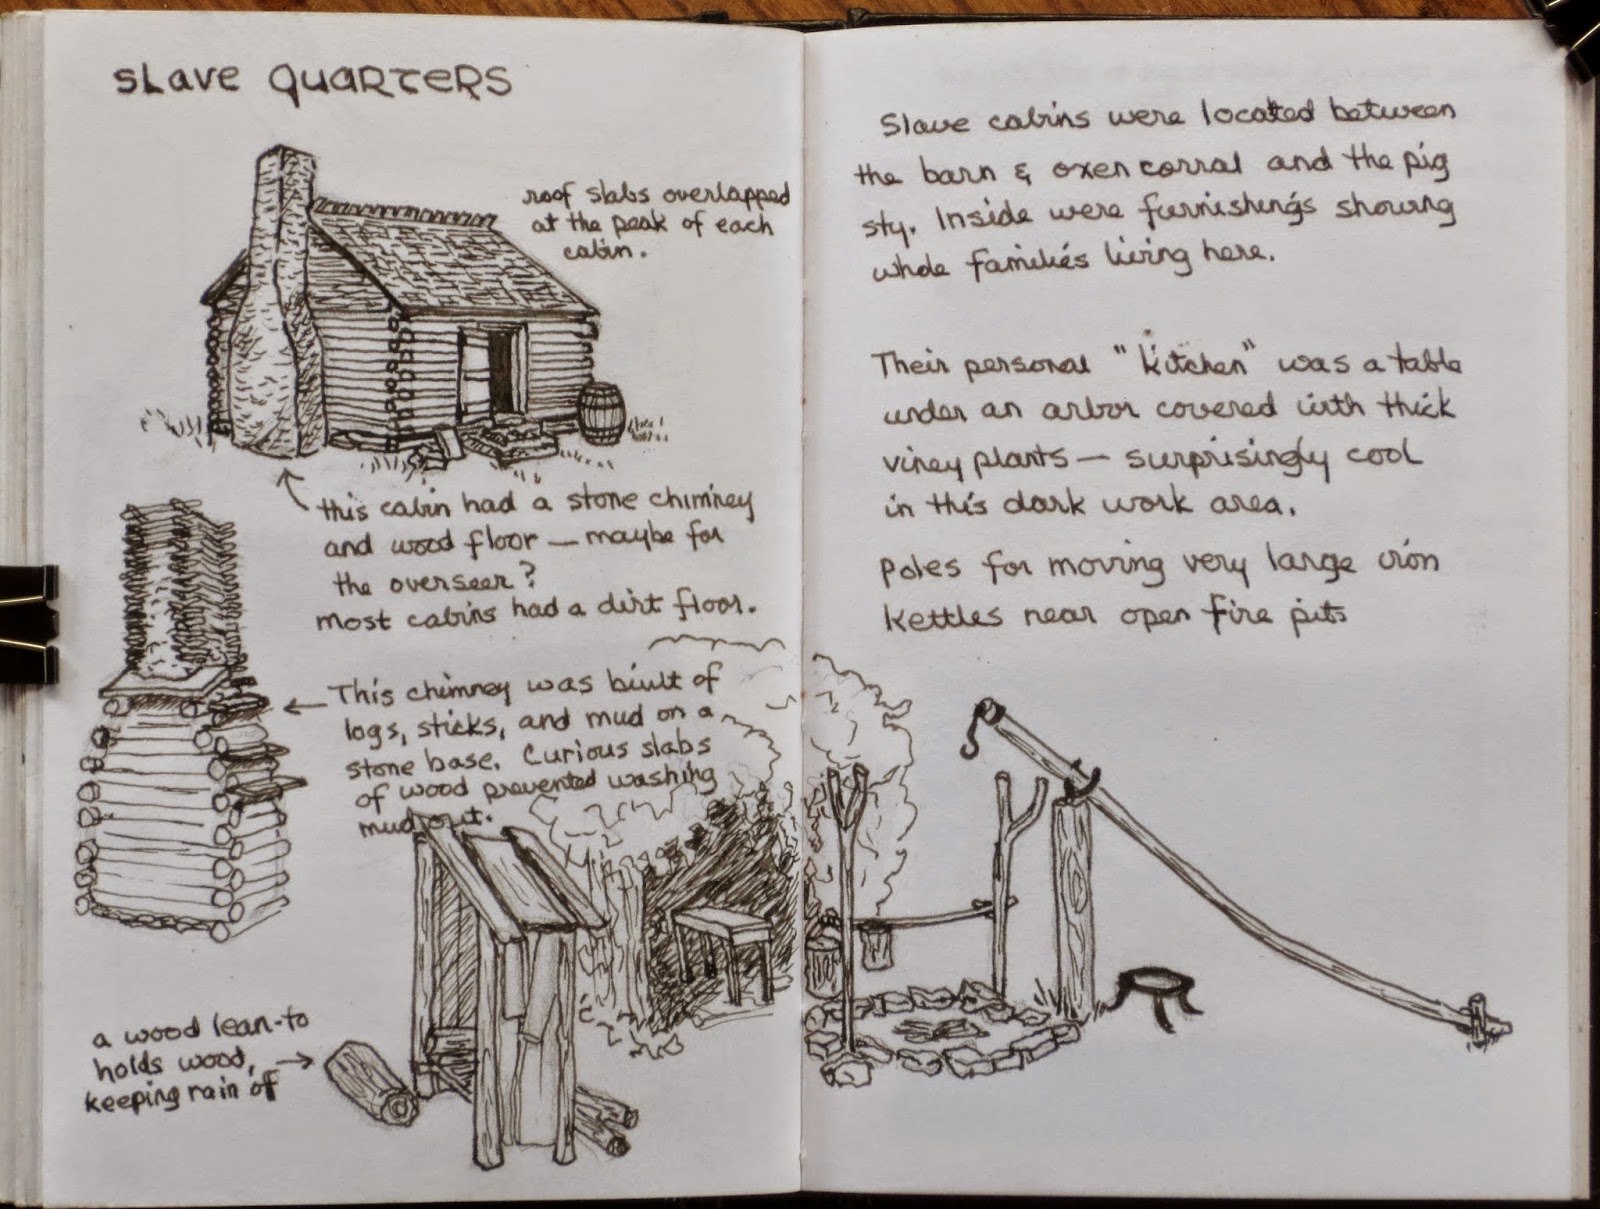 SLAVE QUARTERS
roof slabs overlapped
at the peak of each
cabin.
this cabin had a stone chimney
and wood floor — maybe for
the overseer?
most cabins had a dirt floor.
This chimney was built of
logs, sticks, and mud on a
stone base. Curious slabs
of wood prevented washing
mud out.
a wood lean-to
holds wood,
keeping rain off
Slave cabins were located between
the barn & oxen corral and the pig
sty. Inside were furnishings showing
whole families living here.
Their personal "kitchen" was a table
under an arbor covered with thick
viney plants — surprisingly cool
in this dark work area.
Poles for moving very large iron
kettles near open fire pits